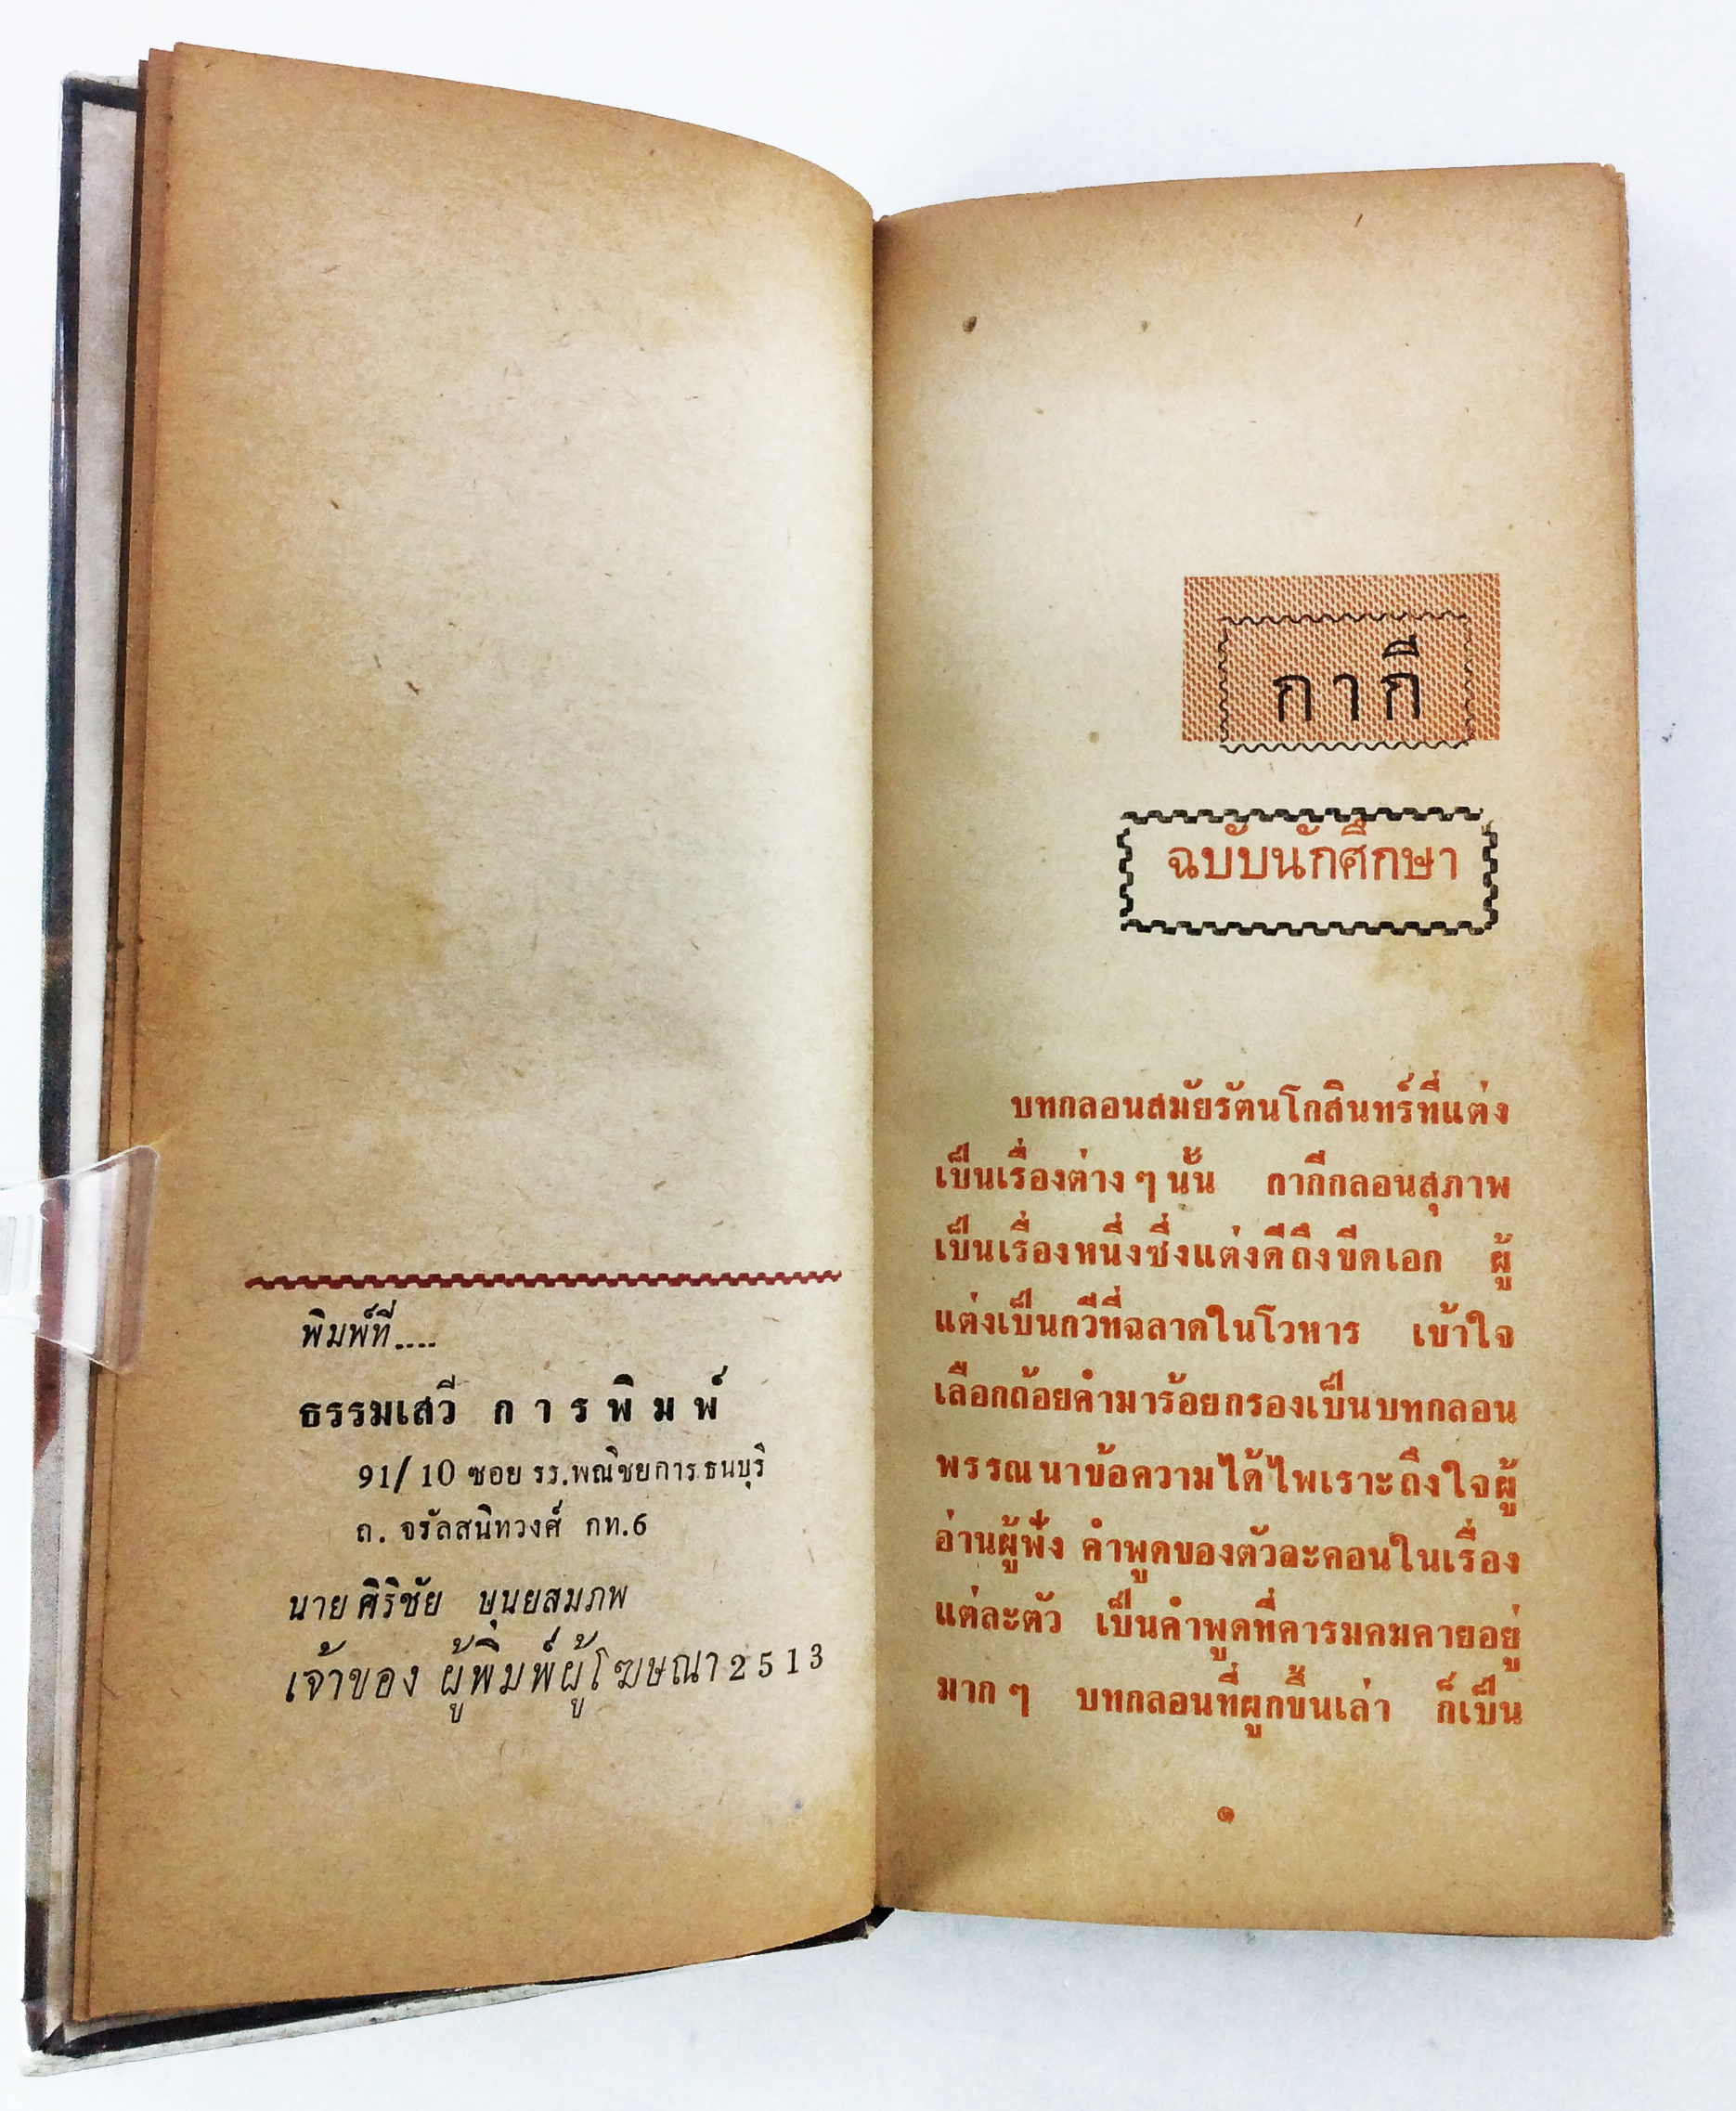 พิมพ์ที่....
ธรรมเสวี การพิมพ์
91/10 ซอย รร.พณิชยการ ธนบุรี
ถ. จรัลสนิทวงศ์ กท.6
นาย ศิริชัย บุนยสมภพ
เจ้าของ ผู้พิมพ์ผู้โฆษณา 2513
กากี
ฉบับนักศึกษา
บทกลอนสมัยรัตนโกสินทร์ที่แต่ง
เป็นเรื่องต่าง ๆ นั้น กากีกลอนสุภาพ
เป็นเรื่องหนึ่งซึ่งแต่งดีถึงขีดเอก ผู้
แต่งเป็นกวีที่ฉลาดในโวหาร เข้าใจ
เลือกถ้อยคำมาร้อยกรองเป็นบทกลอน
พรรณนาข้อความได้ไพเราะถึงใจผู้
อ่านผู้ฟัง คำพูดของตัวละคอนในเรื่อง
แต่ละตัว เป็นคำพูดที่คารมคมคายอยู่
มาก ๆ บทกลอนที่ผูกขึ้นเล่า ก็เป็น
๑